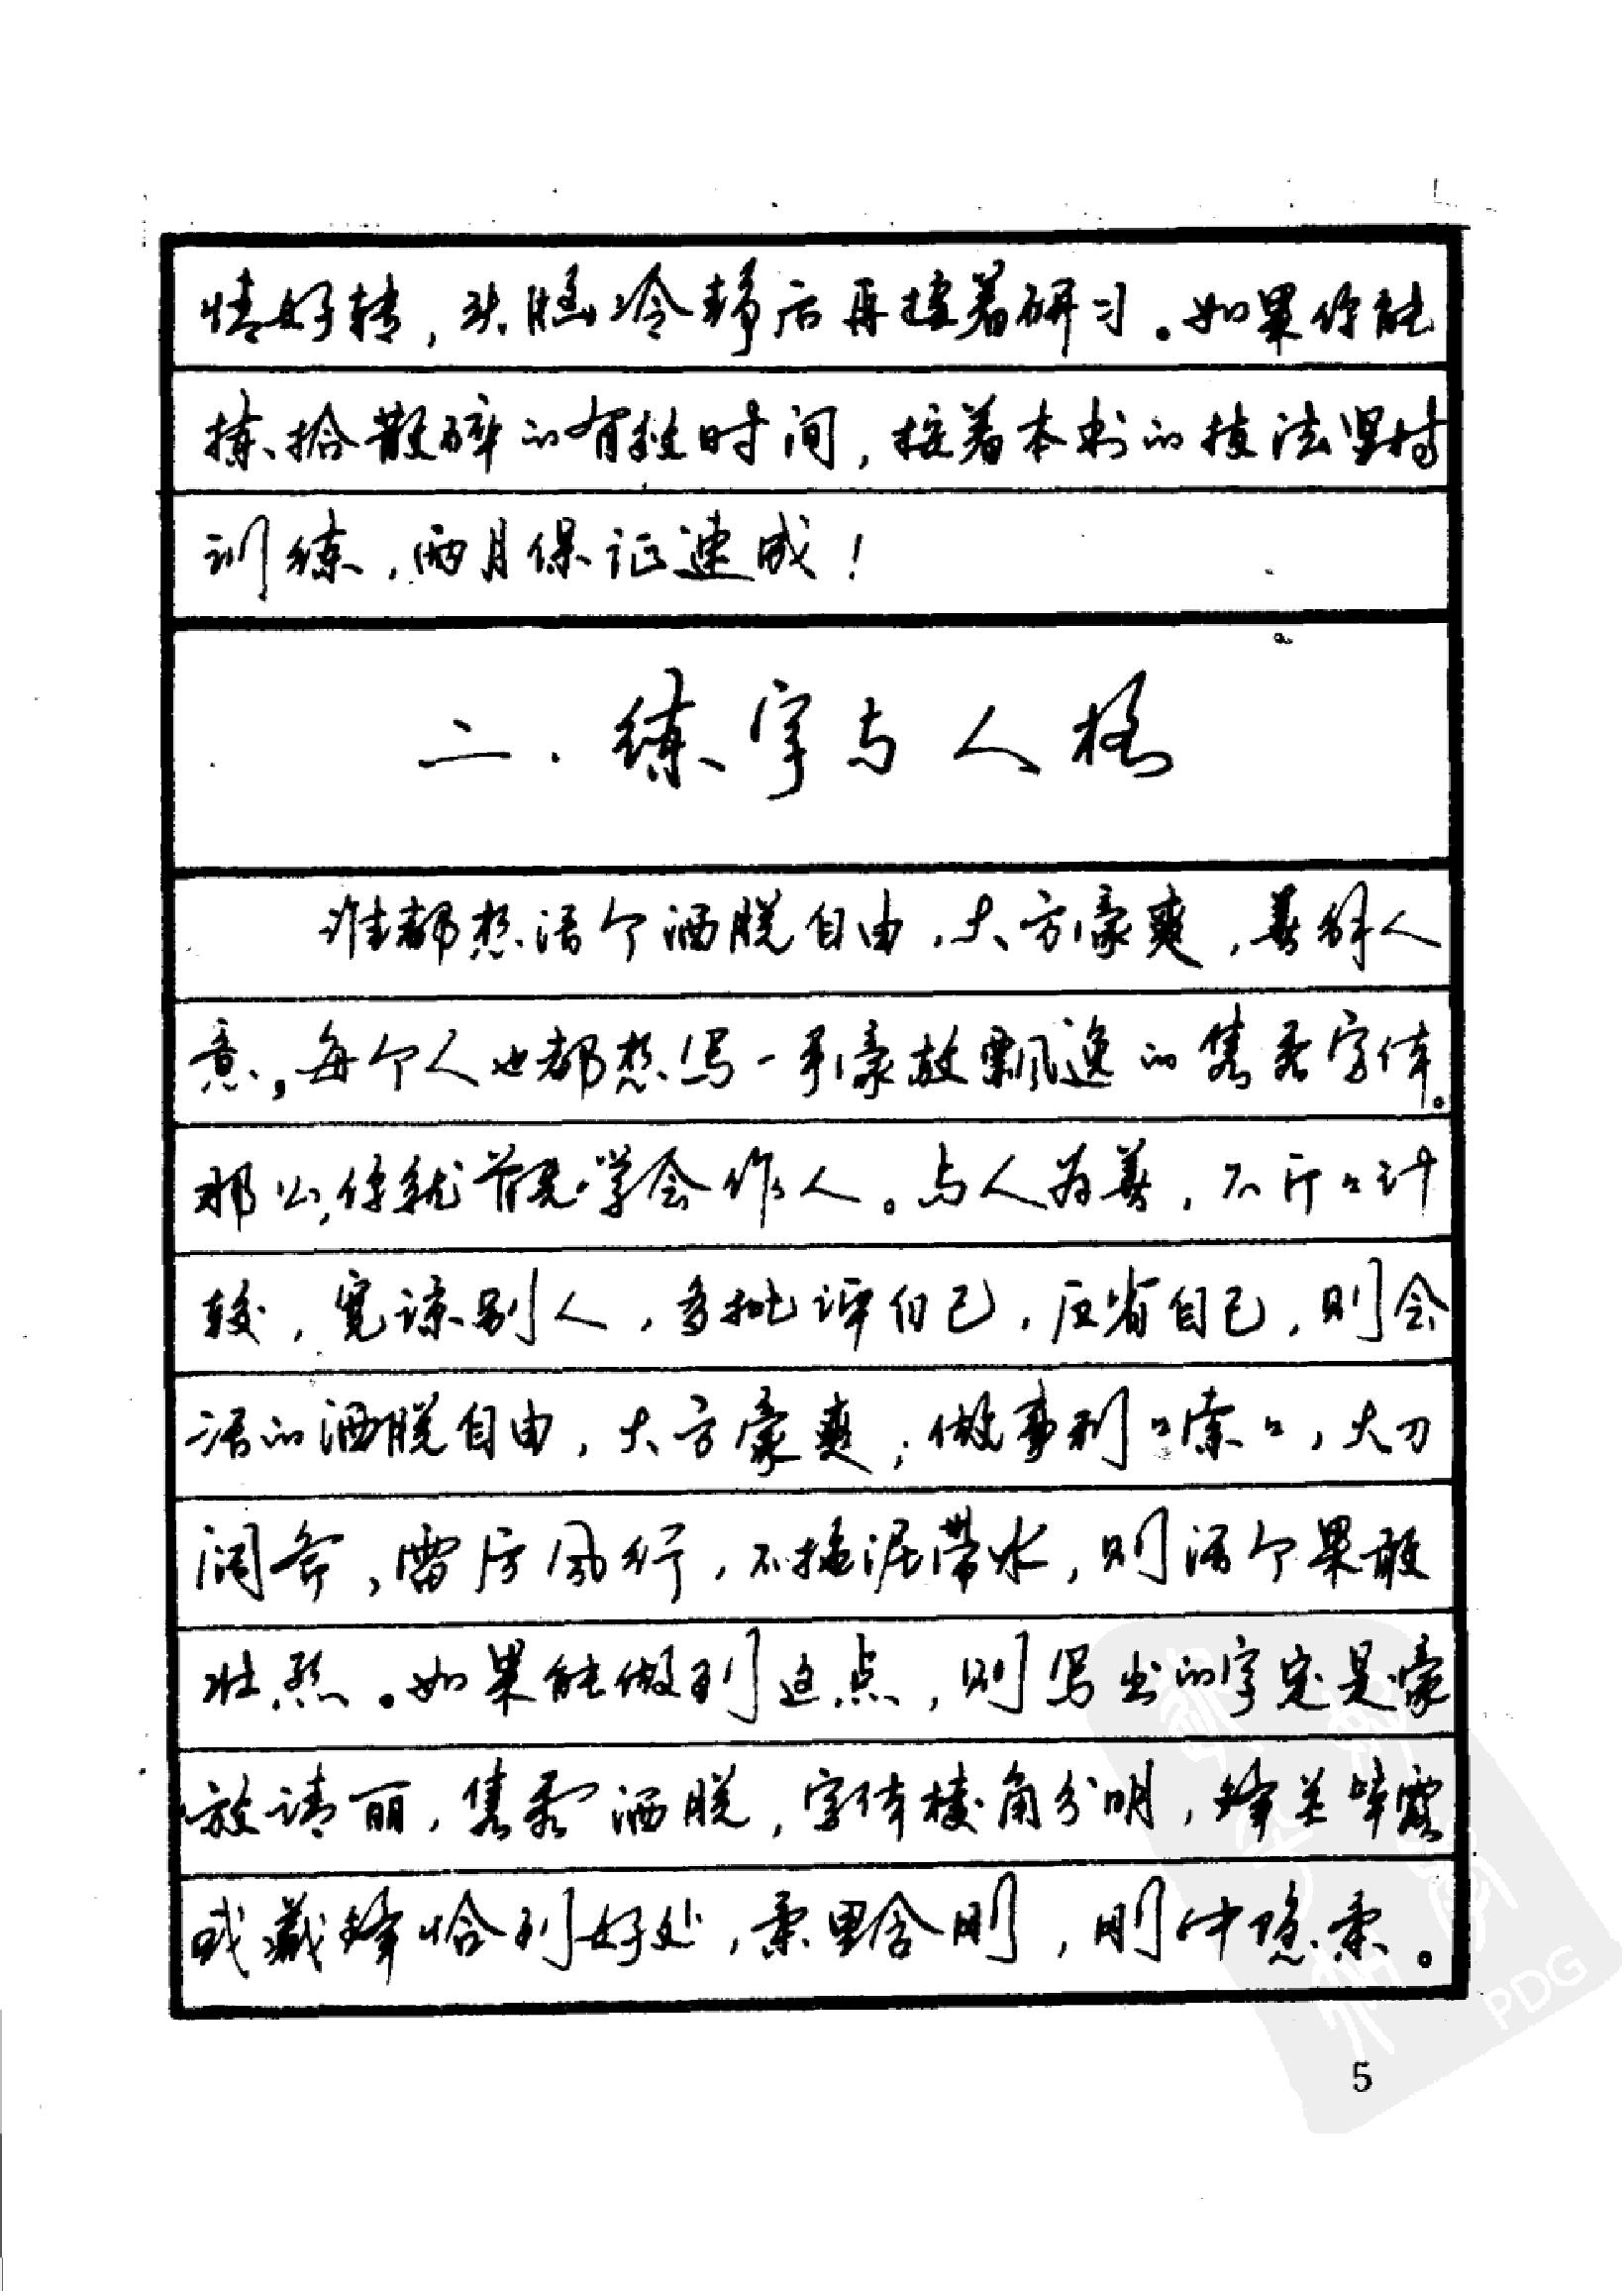 情好转，头脑冷静后再接着研习。如果你能
拣拾散碎的有挫时间，按着本书的技法坚持
训练，两月保证速成！
二.练字与人格
谁都想活个洒脱自由，大方豪爽，善解人
意。每个人也都想写一手豪放飘逸的隽秀字体。
那么，你就首先学会作人。与人为善，不斤々计
较，宽谅别人，多批评自己，反省自己，则会
活的洒脱自由，大方豪爽；做事利々索々，大刀
阔斧，雷厉风行，不拖泥带水，则活个果敢
壮烈。如果能做到这点，则写出的字定是豪
放清丽，隽秀洒脱，字体棱角分明，锋芒毕露
或藏锋恰到好处，柔里含刚，刚中隐柔。
5
PDG